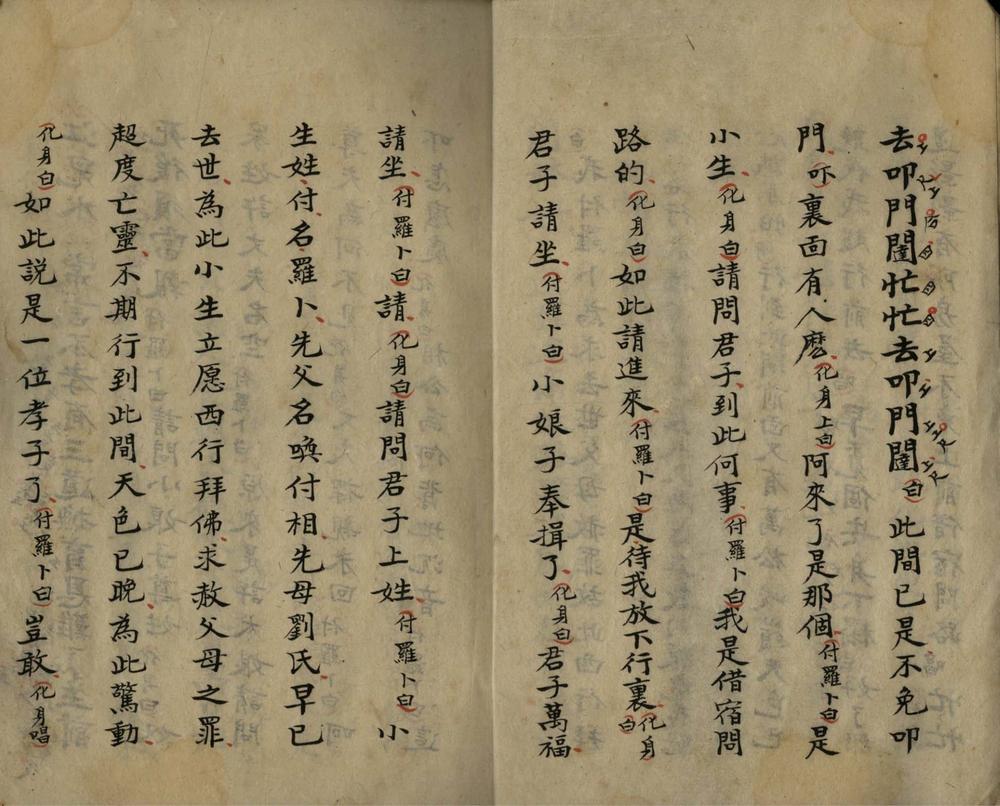 去叩門闔忙忙去叩門闔(白)此間已是不免叩
門、吓裏面有人麽(化身上白)阿來了是那個(付羅卜白)是
小生、(化身白)請問君子到此何事(付羅卜白)我是借宿問
路的(化身白)如此請進來(付羅卜白)是待我放下行裏(化身白)
君子請坐(付羅卜白)小娘子奉揖了(化身白)君子萬福
請坐(付羅卜白)請(化身白)請問君子上姓(付羅卜白)小
生姓付名羅卜先父名喚付相先母劉氏早已
去世為此小生立愿西行拜佛求赦父母之罪
超度亡靈不期行到此間天色已晚為此驚動
(化身白)如此説是一位孝子了(付羅卜白)豈敢(化身唱)